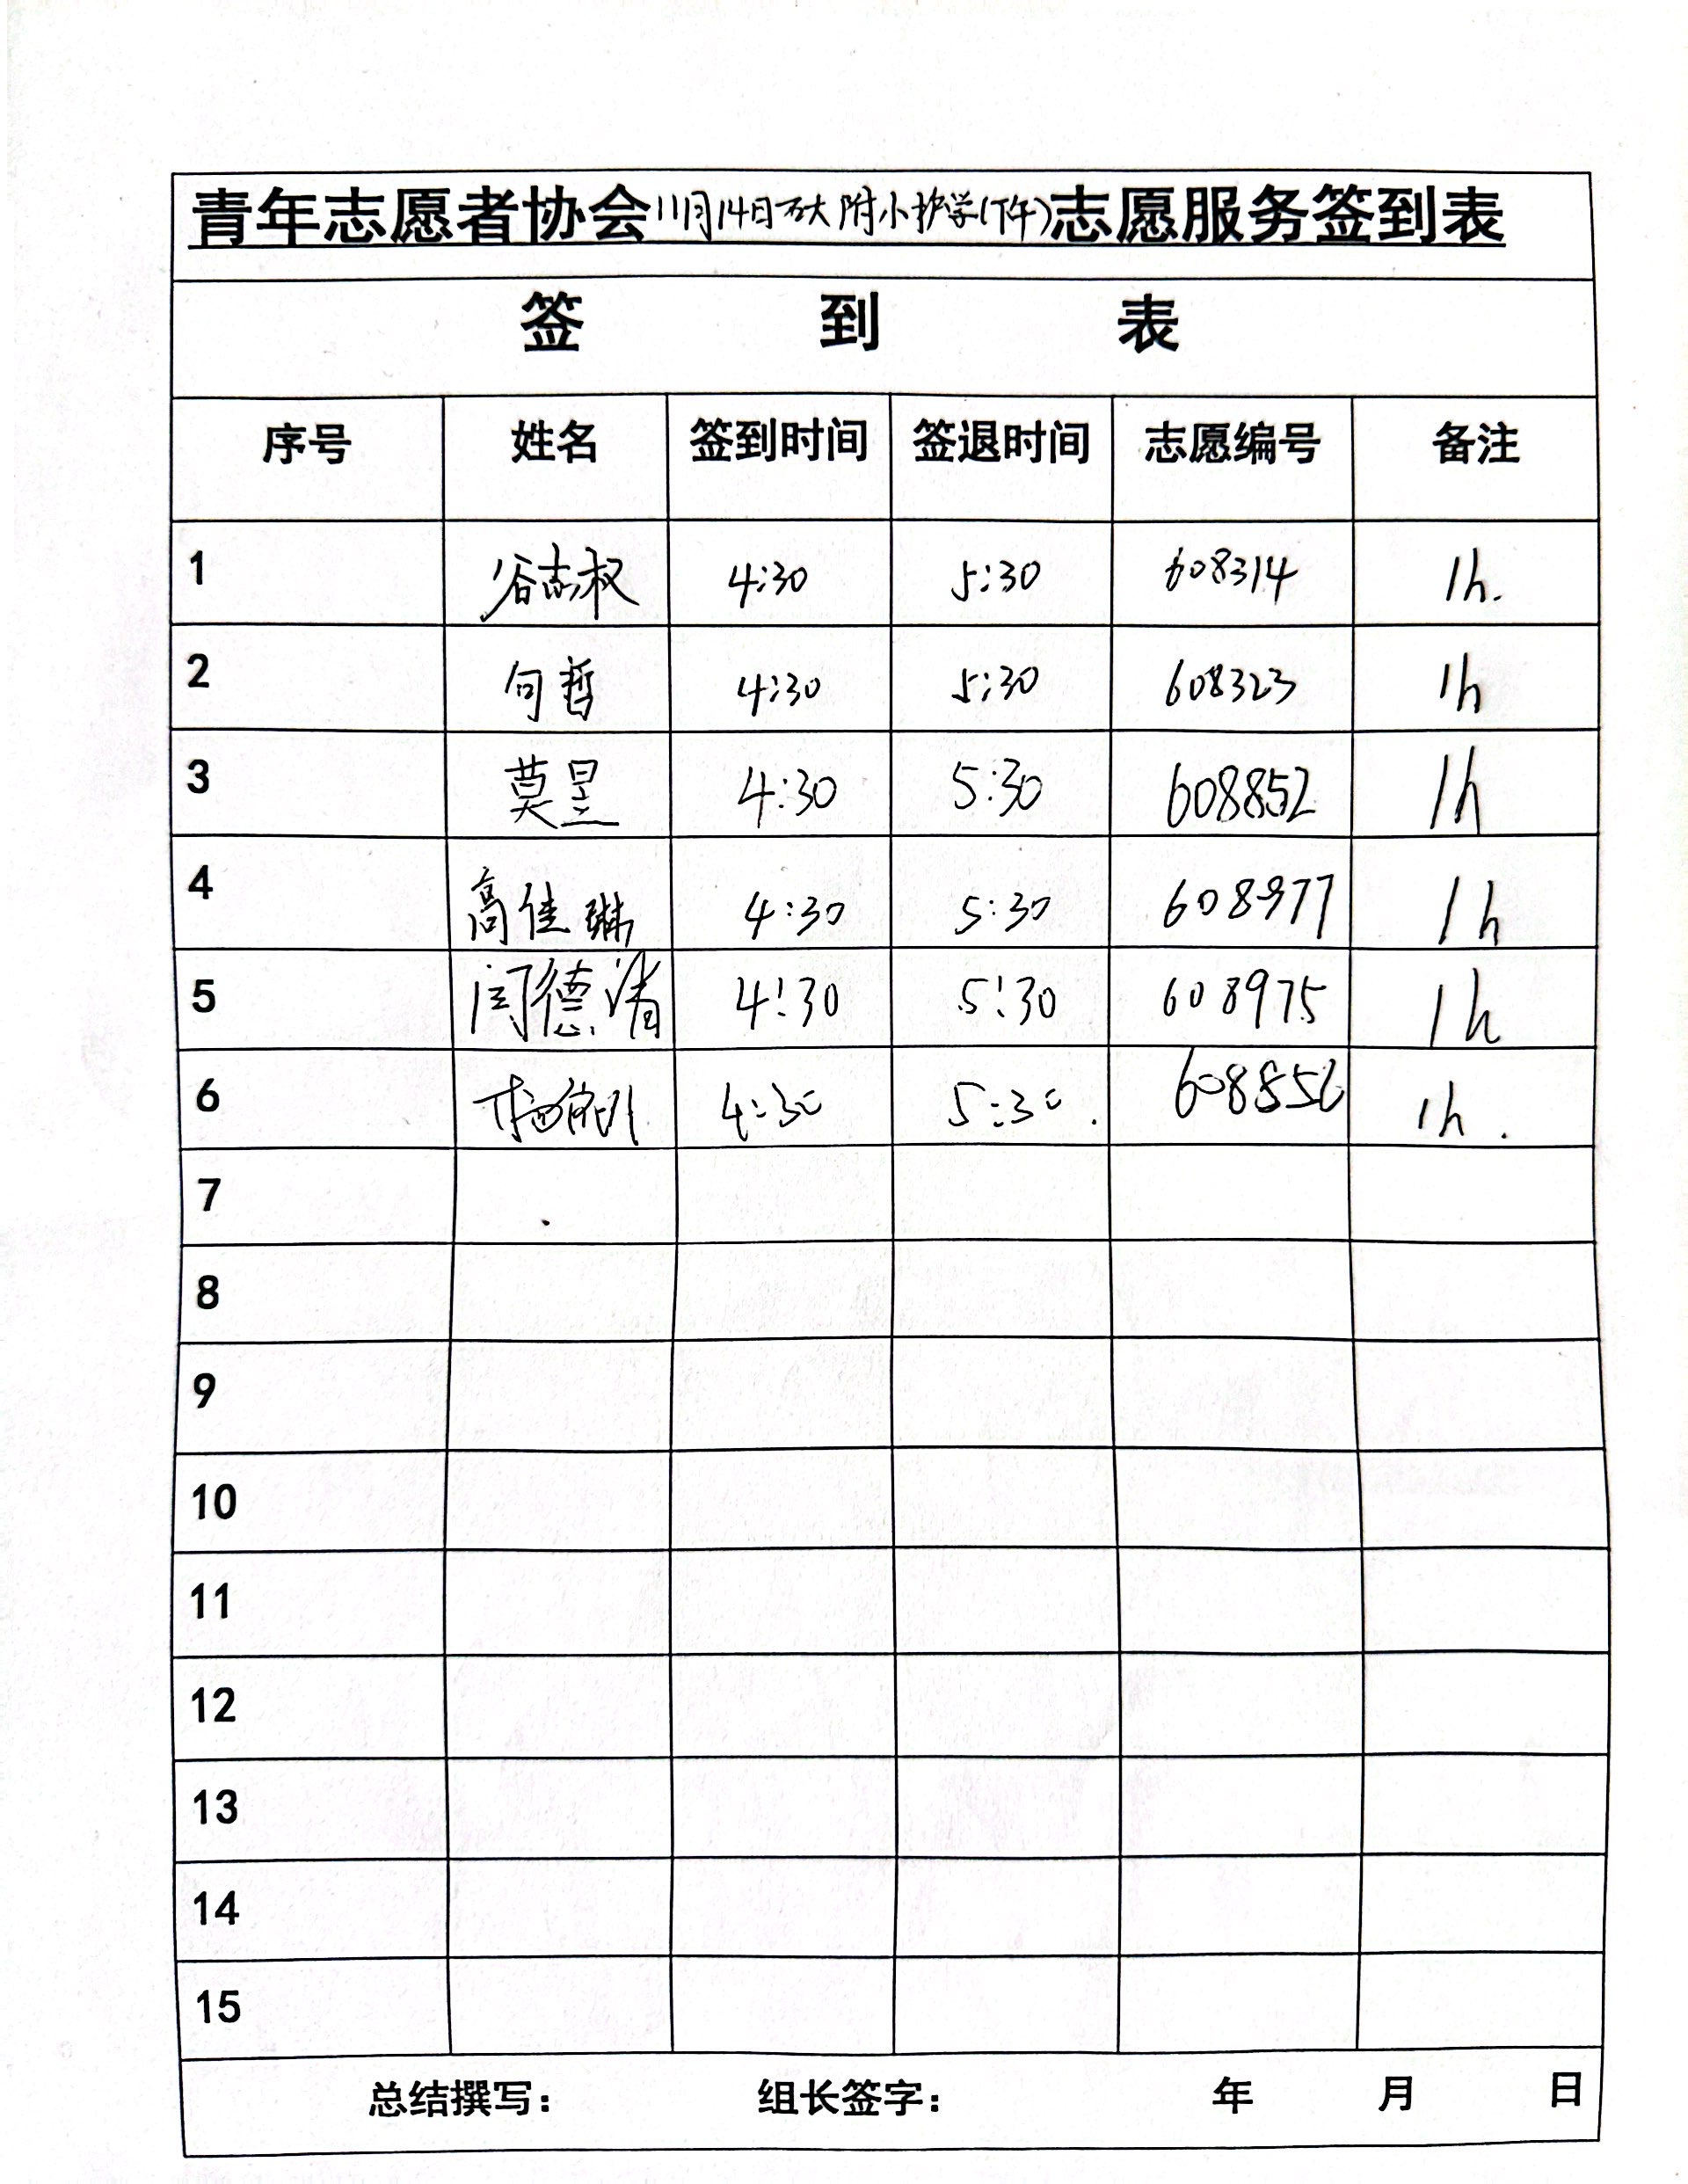 青年志愿者协会11月14日石大附小护学(下午)志愿服务签到表
签 到 表
序号 姓名 签到时间 签退时间 志愿编号 备注
1 谷志权 4:30 5:30 608314 1h.
2 向哲 4:30 5:30 608323 1h
3 莫昱 4:30 5:30 608852 1h
4 高佳琳 4:30 5:30 608977 1h
5 闫德清 4:30 5:30 608975 1h
6 4:30 5:30. 608856 1h.
7
8
9
10
11
12
13
14
15
总结撰写: 组长签字: 年 月 日